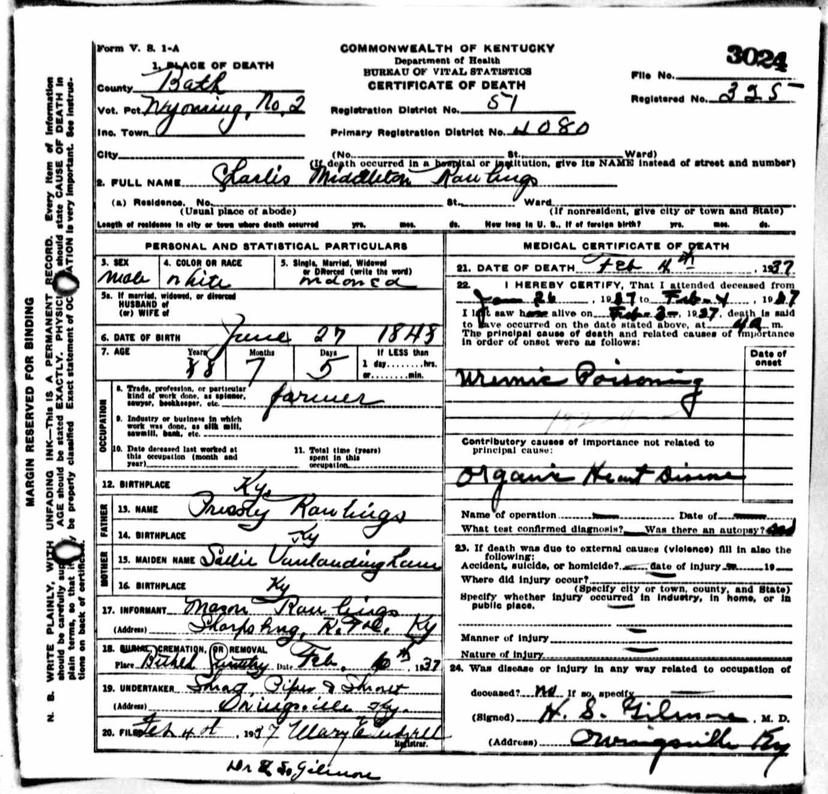 Form V. S. 1-A
COMMONWEALTH OF KENTUCKY
Department of Health
BUREAU OF VITAL STATISTICS
CERTIFICATE OF DEATH
3024
File No.
Registered No. 325
1. PLACE OF DEATH
County Bath
Vot. Pct. Wyoming, No. 2
Inc. Town
City
Registration District No. 51
Primary Registration District No. 4080
(No. St. Ward)
(If death occurred in a hospital or institution, give its NAME instead of street and number)
2. FULL NAME Charlis Middleton Rawlings
(a) Residence. No. St. Ward
(Usual place of abode) (If nonresident, give city or town and State)
Length of residence in city or town where death occurred yrs. mos. ds. How long in U. S., if of foreign birth? yrs. mos. ds.
PERSONAL AND STATISTICAL PARTICULARS
3. SEX 4. COLOR OR RACE 5. Single, Married, Widowed
or Divorced (write the word)
male white
5a. If married, widowed, or divorced
HUSBAND of
(or) WIFE of
6. DATE OF BIRTH June 27 1848
7. AGE Years Months Days If LESS than
88 7 5 1 day........hrs.
or........min.
OCCUPATION
8. Trade, profession, or particular
kind of work done, as spinner,
sawyer, bookkeeper, etc. farmer
9. Industry or business in which
work was done, as silk mill,
sawmill, bank, etc.
10. Date deceased last worked at
this occupation (month and
year)
11. Total time (years)
spent in this
occupation
12. BIRTHPLACE Ky.
FATHER
13. NAME Rawlings
14. BIRTHPLACE Ky
MOTHER
15. MAIDEN NAME Sallie Vanlandingham
16. BIRTHPLACE Ky
17. INFORMANT Mason Rawlings
(Address) Sharpsburg, Ky
18. BURIAL, CREMATION, OR REMOVAL
Place Bethel Cemetry Date Feb. 1937
19. UNDERTAKER
(Address) Owingsville Ky.
20. FILED Feb 4 1937 Mary
Registrar.
MEDICAL CERTIFICATE OF DEATH
21. DATE OF DEATH Feb 4th, 1937
22. I HEREBY CERTIFY, That I attended deceased from
Jan 26, 1937 to Feb 4, 1937
I last saw alive on Feb 1937, death is said
to have occurred on the date stated above, at 4 a m.
The principal cause of death and related causes of importance
in order of onset were as follows:
Date of
onset
Uremic Poisoning
Contributory causes of importance not related to
principal cause:
Organic Heart Disease
Name of operation Date of
What test confirmed diagnosis? Was there an autopsy?
23. If death was due to external causes (violence) fill in also the
following:
Accident, suicide, or homicide? date of injury 19
Where did injury occur?
(Specify city or town, county, and State)
Specify whether injury occurred in industry, in home, or in
public place.
Manner of injury
Nature of injury
24. Was disease or injury in any way related to occupation of
deceased? No If so, specify
(Signed) H. S. Gilmore, M. D.
(Address) Owingsville Ky
Gilmore
MARGIN RESERVED FOR BINDING
N. B. WRITE PLAINLY, WITH UNFADING INK—This is A PERMANENT RECORD. Every item of information
should be carefully AGE should be stated EXACTLY. should state CAUSE OF DEATH in
plain terms, so that be properly classified. Exact statement of is very important. See instruc-
tions on back of certificate.